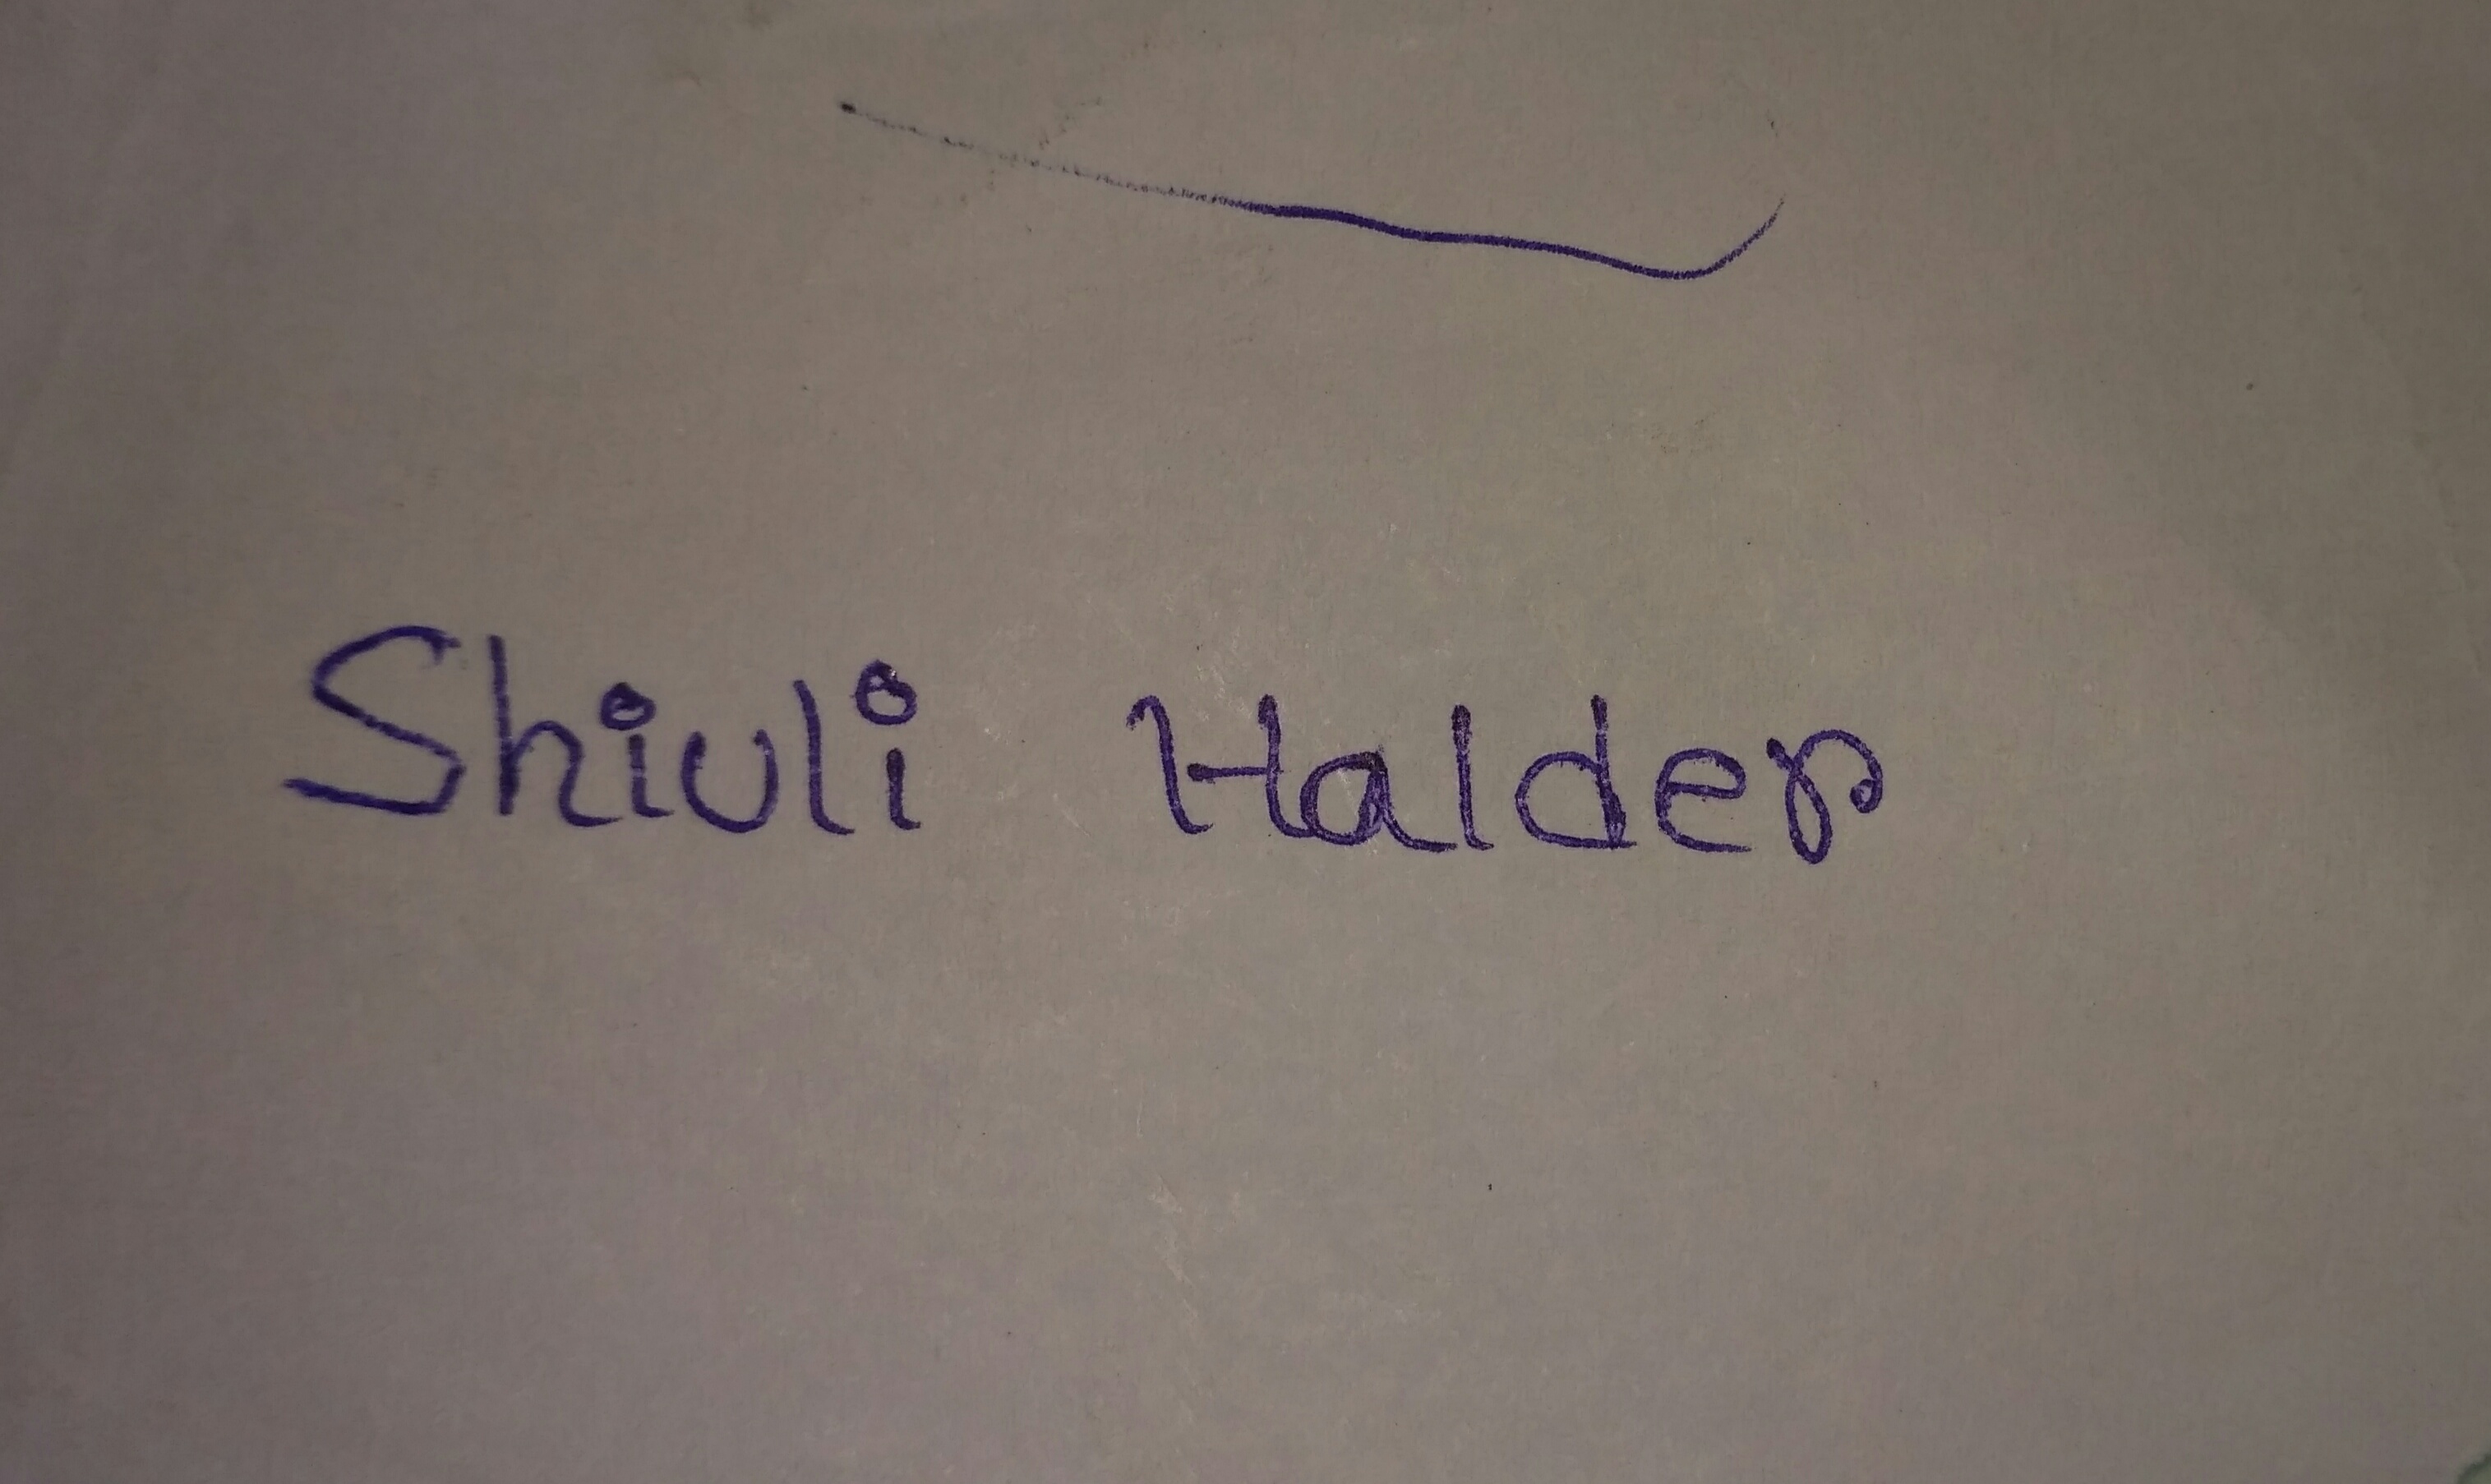 Shiuli Halder